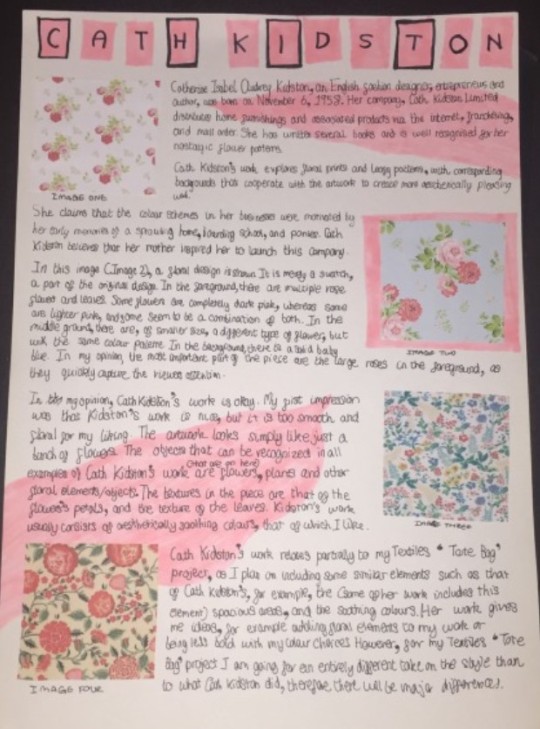 CATH KIDSTON
Catherine Isabel Audrey Kidston, an English fashion designer, entrepreneur and
author, was born on November 6, 1958. Her company, Cath Kidston Limited
distributes home furnishings and associated products via the internet, franchising,
and mail order. She has written several books and is well recognised for her
nostalgic flower patterns.
Cath Kidston's work explores floral prints and patterns, with corresponding
backgrounds that cooperate with the artwork to create more aesthetically pleasing
work.
IMAGE ONE
She claims that the colour schemes in her businesses were motivated by
her early memories of a sprawling home, boarding school, and ponies. Cath
Kidston believes that her mother inspired her to launch this company.
In this image (Image 2), a floral design is shown. It is merely a swatch,
a part of the original design. In the foreground, there are multiple rose
flowers and leaves. Some flowers are completely dark pink, whereas some
are lighter pink, and some seem to be a combination of both. In the
middle ground, there are, of smaller size, a different type of flower, but
with the same colour palette. In the background, there is a solid baby
blue. In my opinion, the most important part of the piece are the large roses in the foreground, as
they quickly capture the viewers attention.
IMAGE TWO
In my opinion, Cath Kidston's work is okay. My first impression
was that Kidston's work is nice, but it is too smooth and
floral for my liking. The artwork looks simply like just a
bunch of flowers. The objects that can be recognized in all
examples of Cath Kidston's work (that are on here) are flowers, plants and other
floral elements/objects. The textures in the piece are that of the
flower's petals, and the texture of the leaves. Kidston's work
usually consists of aesthetically soothing colours, that of which I like.
IMAGE THREE
Cath Kidston's work relates partially to my Textiles "Tote Bag"
project, as I plan on including some similar elements such as that
of Cath Kidston's, for example, the (some of her work includes this
element) spacious areas, and the soothing colours. Her work gives
me ideas, for example adding floral elements to my work or
being less bold with my colour choices. However, for my Textiles "Tote
Bag" project I am going for an entirely different take on the style than
to what Cath Kidston did, therefore there will be major differences.
IMAGE FOUR